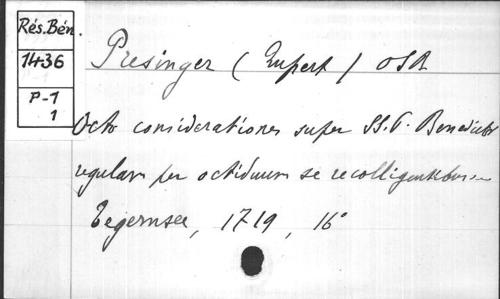 Rés.Bén.
1436
P-1
1
Presinger (Rupert) OSB
Octo considerationes super SS.P. Benedicti
regulam per octiduum se recolligentibus
Tegernsee, 1719, 16°